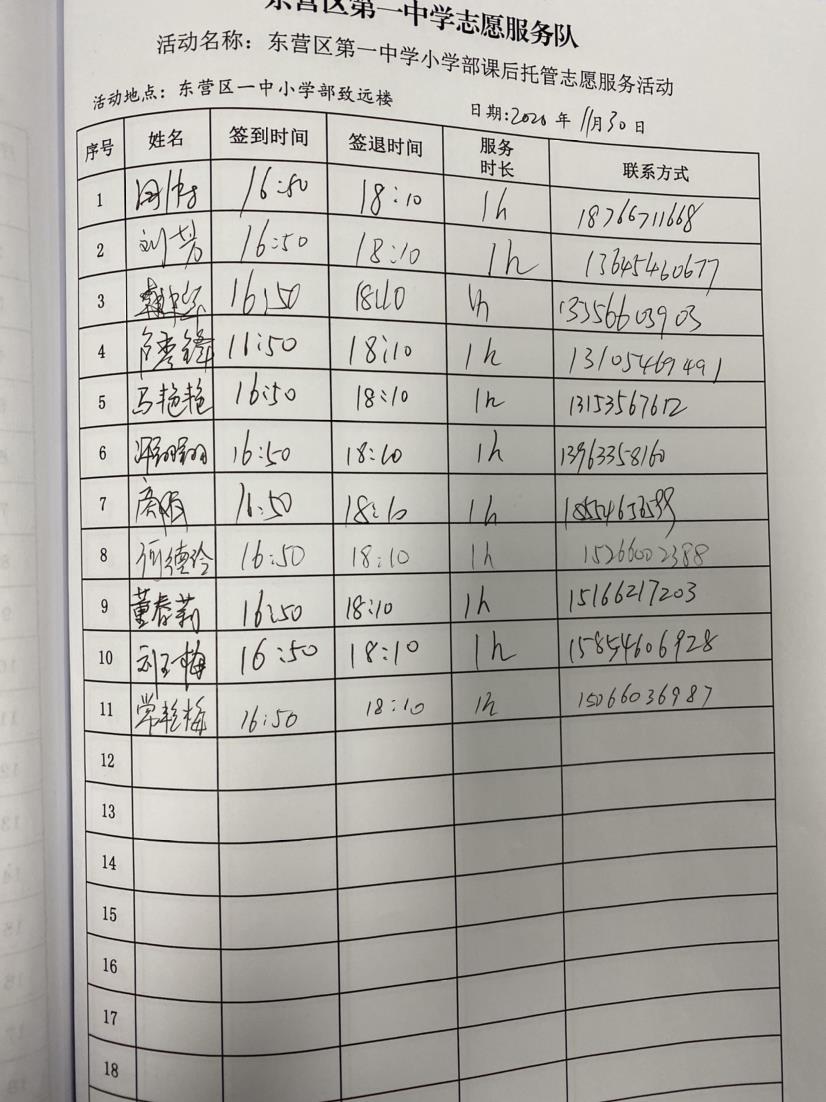 东营区第一中学志愿服务队
活动名称：东营区第一中学小学部课后托管志愿服务活动
活动地点：东营区一中小学部致远楼 日期：2020 年 11月 30 日
序号 姓名 签到时间 签退时间 服务时长 联系方式
1 16:50 18:10 1h 18766711668
2 刘芳 16:50 18:10 1h 13645460677
3 16:50 18:10 1h 13356603903
4 18:10 1h 13105469491
5 马艳艳 16:50 18:10 1h 13153567612
6 16:50 18:10 1h 13963358160
7 16:50 18:10 1h
8 16:50 18:10 1h 15266002388
9 董春莉 16:50 18:10 1h 15166217203
10 刘玉梅 16:50 18:10 1h 15854606928
11 常艳梅 16:50 18:10 1h 15066036987
12
13
14
15
16
17
18